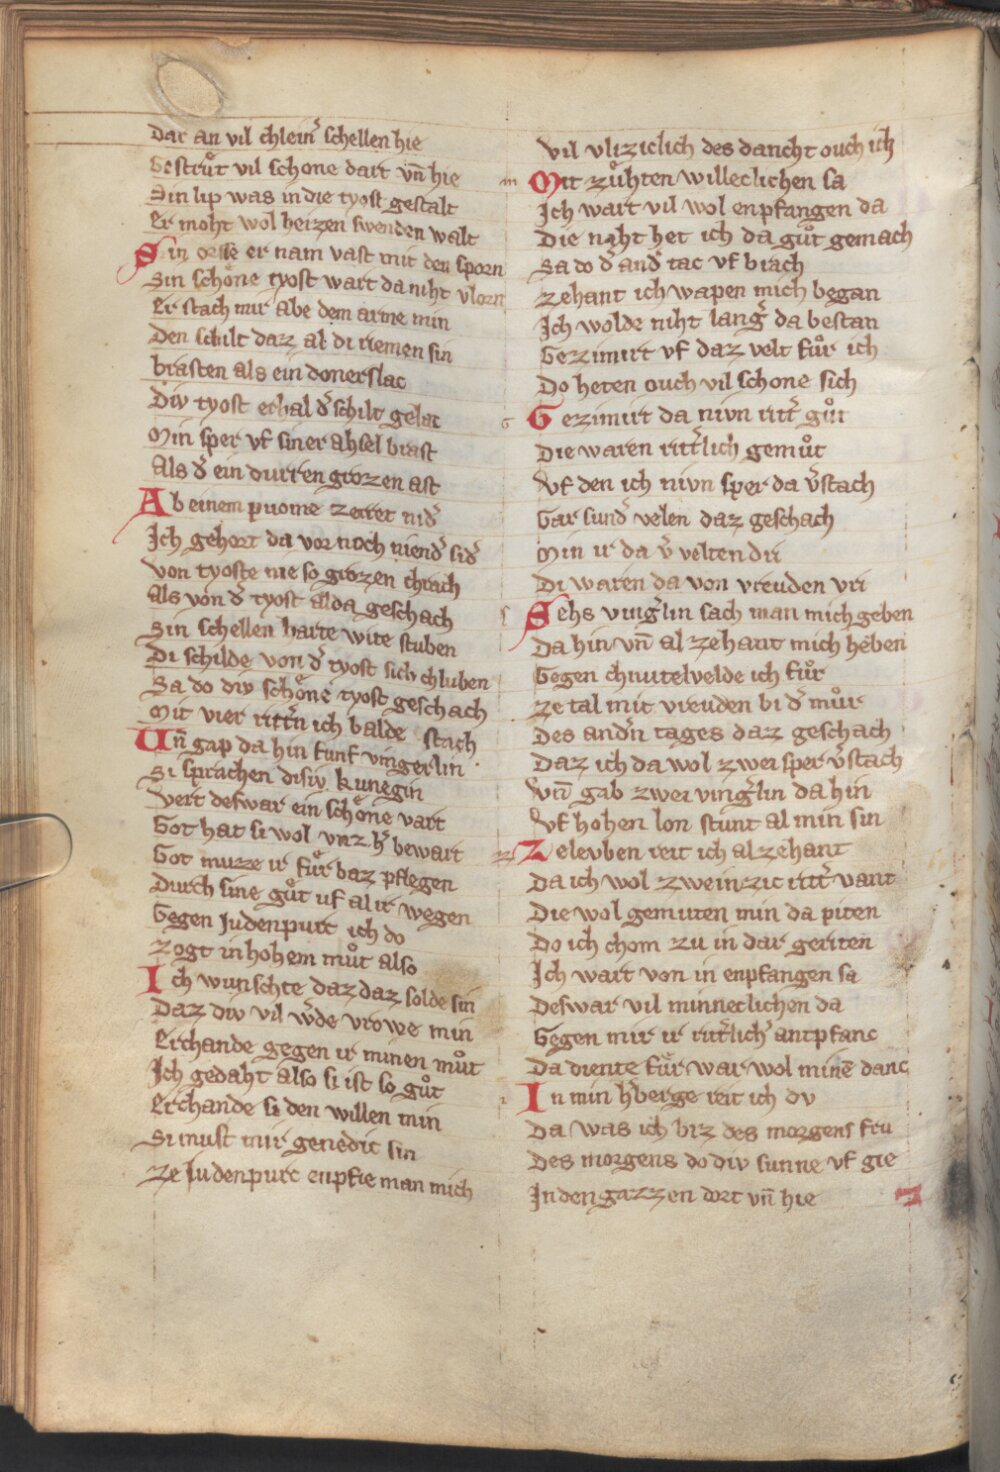 Dar an vil chlein̄ schellen hie
Gestrůt vil schone dart vn̄ hie
Sin lip was in die tyost gestalt
Er moht wol herzen swenden walt
Sin orsse er nam vast mit den sporn
Sin schone tyost wart da niht v̄lorn
Er stach mir abe dem arme min
Den schilt daz al di riemen sin
brasten als ein donerslac
Div tyost erhal d̄ schilt gelac
Min sper vf siner ahsel brast
Als d̄ ein durren grozen ast
Ab einem puome zerret nid̄
Ich gehort da vor noch niend̄ sid̄
von tyoste nie so grozen chrach
als von d̄ tyost alda geschach
Sin schellen harte wite stuben
Di schilde von d̄ tyost sich chluben
Sa do div schone tyost geschach
Mit vier ritt̄n ich balde stach
Vn̄ gap da hin funf vingerlin
Si sprachen disiv kunegin
vert deswar ein schone vart
Got hat si wol vnz h̄ bewart
Got muzze ir fůr baz pflegen
Durch sine gůt uf al ir wegen
Gegen Judenpurc ich do
zogt in hohem můt also
Ich wunschte daz daz solde sin
Daz div vil w̄de vrowe min
Erchande gegen ir minen můt
Ich gedaht also si ist so gůt
Erchande si den willen min
Si must mir genedic sin
Ze Judenpurc enpfie man mich
vil vliziclich des daucht ouch ich
m Mit zůhten willeclichen sa
Ich wart vil wol enpfangen da
Die naht het ich da gůt gemach
Sa do d̄ and̄ tac vf brach
zehant ich wapen mich began
Ich wolde niht lanḡ da bestan
Gezimirt vf daz velt fůr ich
Do heten ouch vil schone sich
G Gezimirt da nivn ritt̄ gůt
Die waren ritt̄lich gemůt
Vf den ich nivn sper da v̄stach
Gar sund̄ velen daz geschach
Min ir da v̄ velten dri
Di waren da von vreuden vri
s Sehs vinḡlin sach man mich geben
Da hin vn̄ al zehant mich heben
Gegen chnutelvelde ich fůr
ze tal mit vreuden bi d̄ můr
Des and̄n tages daz geschach
Daz ich da wol zwei sper v̄stach
Vn̄ gab zwei vinḡlin da hin
Vf hohen lon stunt al min sin
z Ze levben reit ich al zehant
Da ich wol zweinzic ritt̄ vant
Die wol gemuten min da piten
Do ich chom zu in dar geriten
Ich wart von in enpfangen sa
Deswar vil minneclichen da
Gegen mir ir ritt̄lich̄ antpfanc
Da diente fůr war wol minē danc
i In min h̄berge reit ich dv
Da was ich biz des morgens fru
Des morgens do div sunne vf gie
In den gazzen dort vn̄ hie